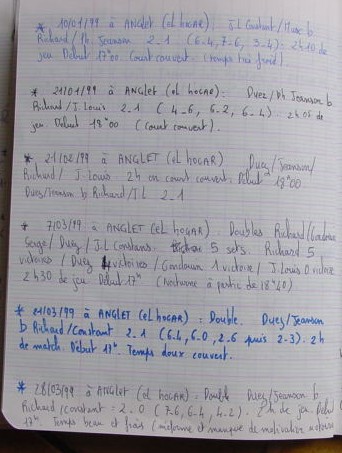 * 10/01/99 à ANGLET (el hogar). J.L Constant / Marc b
Richard / Ph. Jeanson 2_1 (6-4, 7-6, 3-4). 2h10 de
jeu Début 17h00. Court couvert. (temps très froid).
* 21/01/99 à Anglet (el hogar). Duez / Ph Jeanson b
Richard / J. Louis 2_1 (4-6, 6-2, 6-4). 2h05 de
jeu. Début 18h00 (court couvert).
* 21/02/99 à ANGLET (el HOGAR) Duez / Jeanson /
Richard / J. Louis 2h en court couvert. Début 18h00.
Duez / Jeanson b Richard / J L 2_1
* 7/03/99 à ANGLET (el HOGAR). Doubles Richard /
Serge / Duez / J.L Constans. 5 sets. Richard 5
victoires / Duez 4 victoires / 1 victoire / J. Louis 0 victoire
2h30 de jeu Début 17h (Nocturne à partir de 18h40)
* 21/03/99 à ANGLET (el HOGAR) : Double. Duez / Jeanson
b Richard / Constant 2_1 (6-4, 6-0, 2-6 puis 2-3). 2h
de match. Début 17h. Temps doux couvert.
* 28/03/99 à ANGLET (el hogar) : Double Duez / Jeanson b
Richard / Constant : 2_0 (7-6, 6-4, 4-2). 2h de jeu Début
17h. Temps beau et frais (méforme et manque de motivation